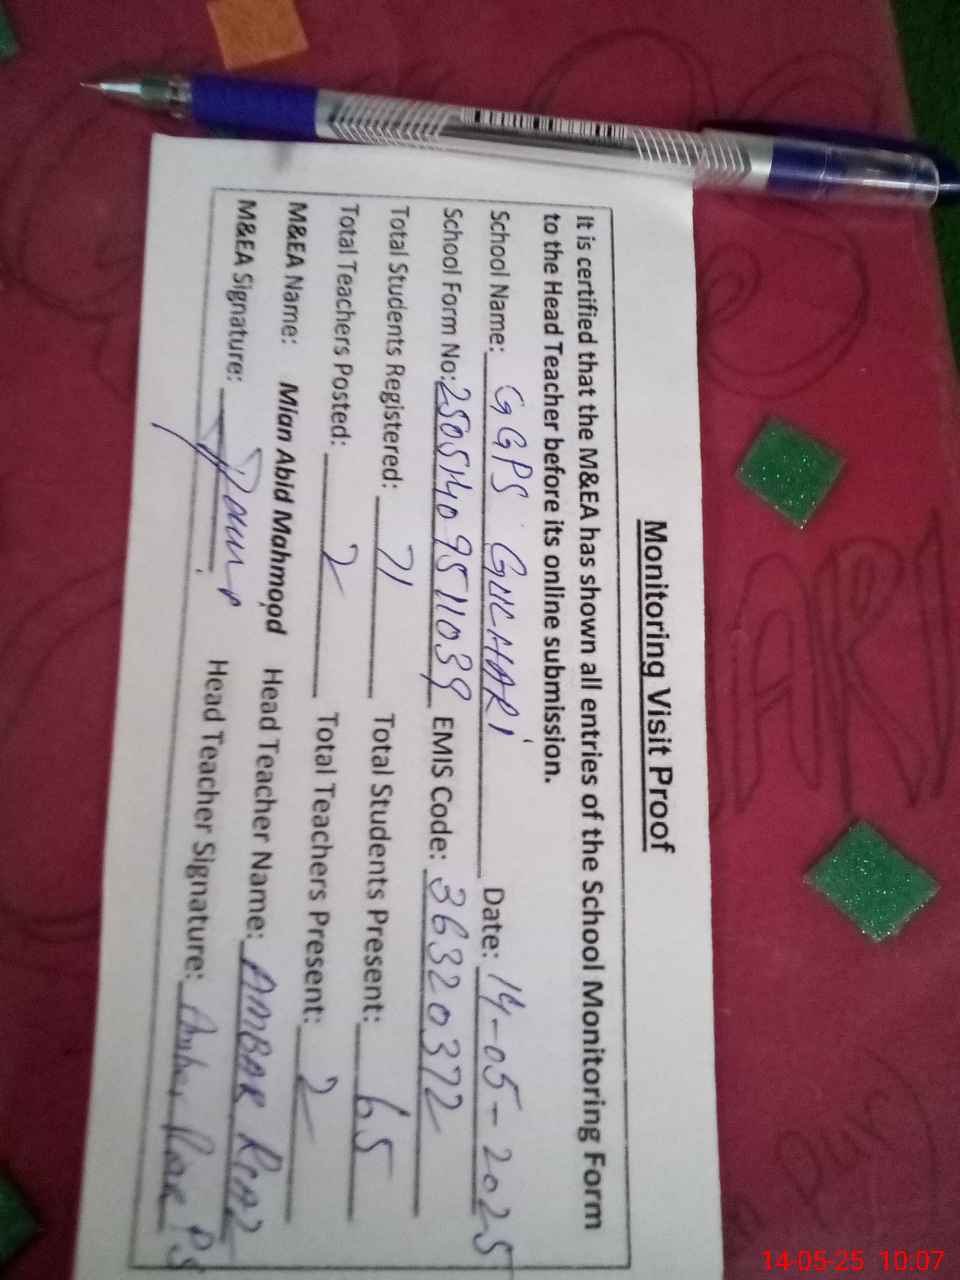 Monitoring Visit Proof
It is certified that the M&EA has shown all entries of the School Monitoring Form
to the Head Teacher before its online submission.
School Name: GGPS GULHARI Date: 14-05-2025
School Form No: 25051409511039 EMIS Code: 36320372
Total Students Registered: 71 Total Students Present: 65
Total Teachers Posted: 2 Total Teachers Present: 2
M&EA Name: Mian Abid Mahmood Head Teacher Name: AMBAR RIAZ
M&EA Signature: Head Teacher Signature:
14-05-25 10:07